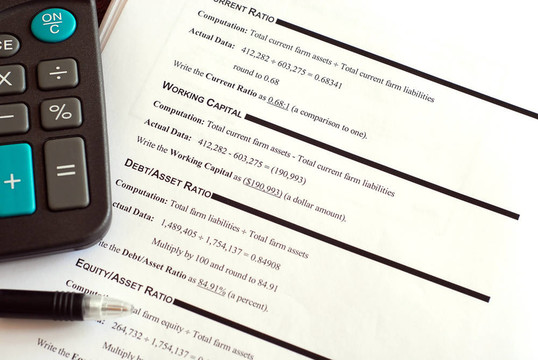 ON
C
CE
X
÷
−
%
+
=
CURRENT RATIO
Computation: Total current farm assets ÷ Total current farm liabilities
Actual Data: 412,282 ÷ 603,275 = 0.68341
round to 0.68
Write the Current Ratio as 0.68:1 (a comparison to one).
WORKING CAPITAL
Computation: Total current farm assets - Total current farm liabilities
Actual Data: 412,282 - 603,275 = (190,993)
Write the Working Capital as ($190,993) (a dollar amount).
DEBT/ASSET RATIO
Computation: Total farm liabilities ÷ Total farm assets
Actual Data: 1,489,405 ÷ 1,754,137 = 0.84908
Multiply by 100 and round to 84.91
the Debt/Asset Ratio as 84.91% (a percent).
EQUITY/ASSET RATIO
farm equity ÷ Total farm assets
264,732 ÷ 1,754,137 =
Multiply by
Write the